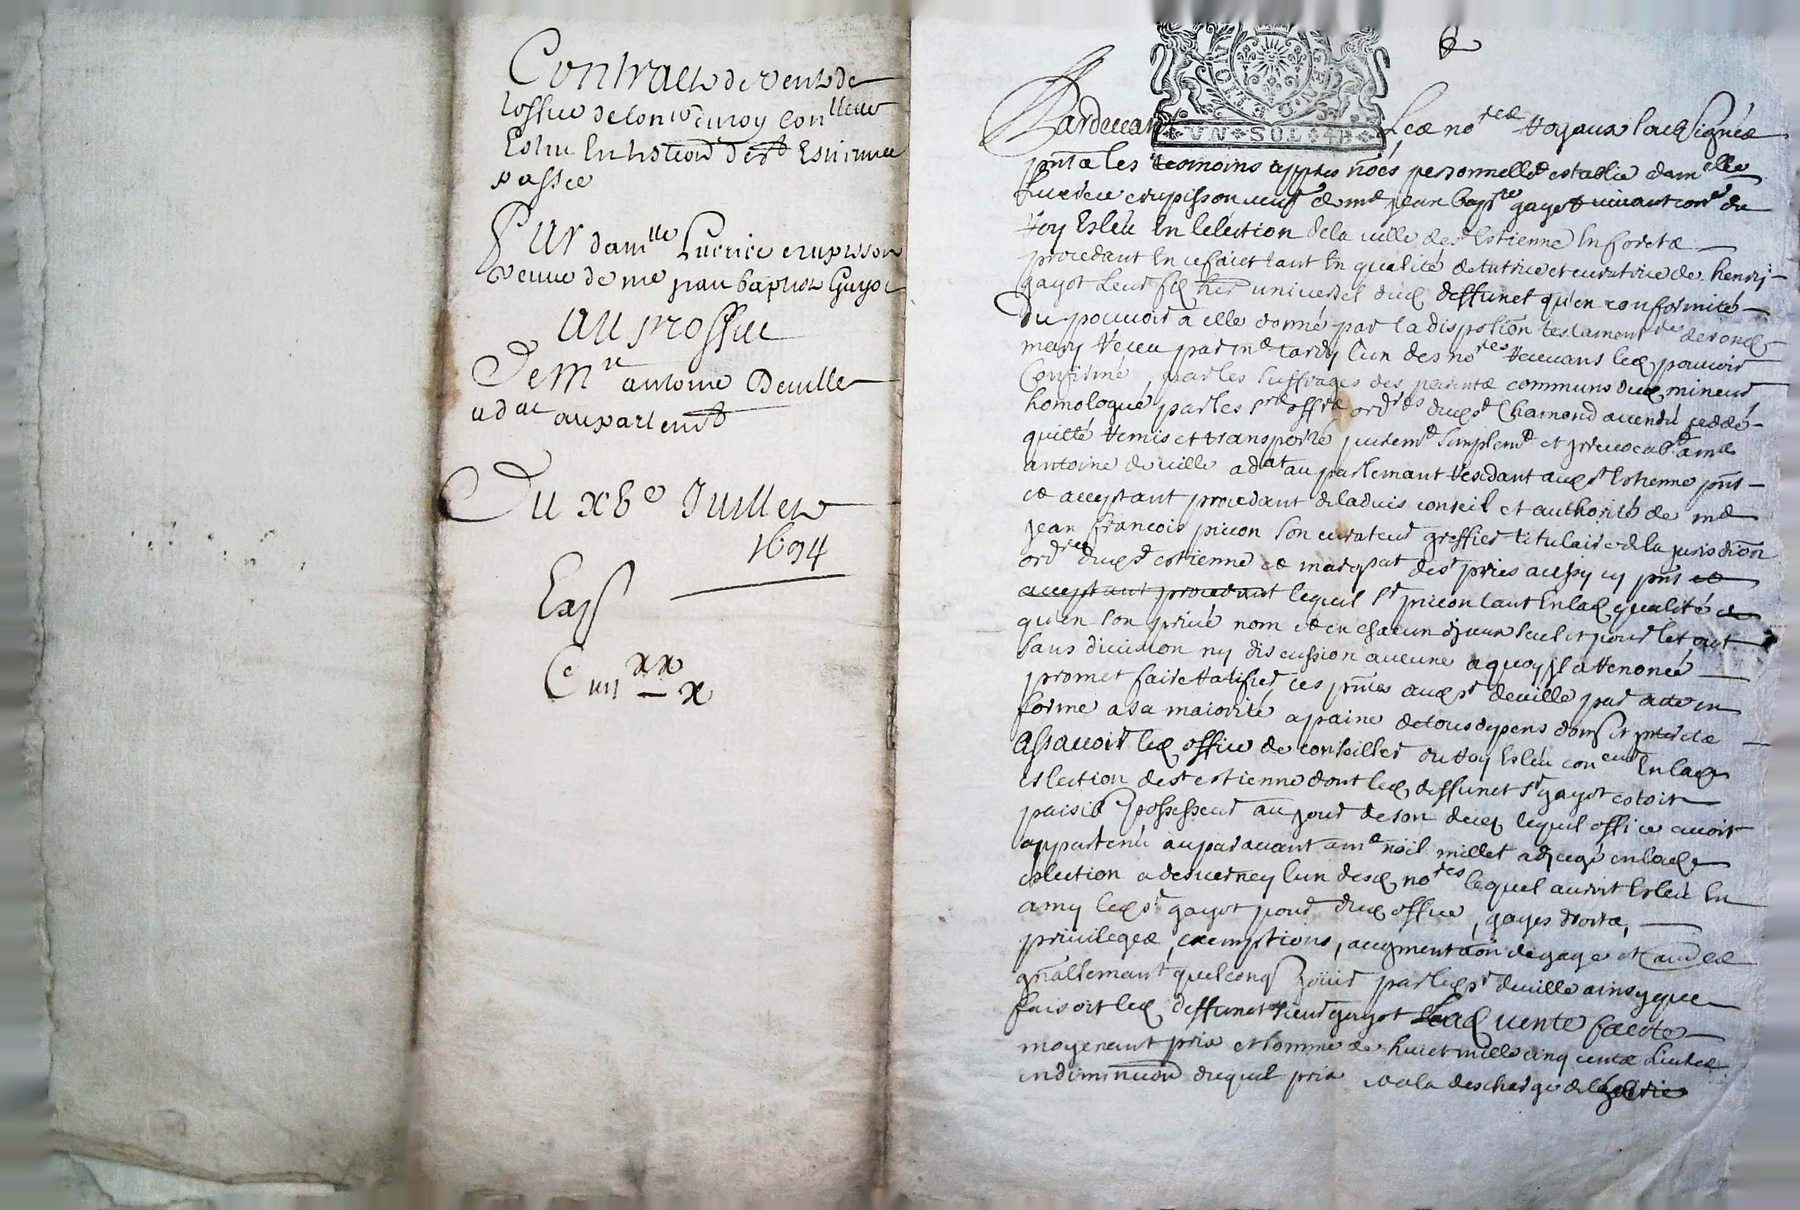 Contracte de vente de
loffice de con.er du roy con.lleur
Esleu En lestion de st Estienne
passee
Par dam.lle Lucrice crupisson
veuve de me jean baptiste Gayot
au proffict
De M.re antoine Deville
adat au parlent
Du x8e Juillet
1694
Exp
C iiij xx x
UN SOL
Pardevant Les no.res royaux soubsignés
pntz les tesmoins apprés només personnellet establie dam.elle
Lucrece crupisson veufe de me jean bap.te gayot vivant con.r du
roy Esleu En lelection de la ville de st Estienne En foretz
procedant En ce faict tant En qualité de tutrice et curatrice de henri
gayot leur filz her universel dud deffunct qu'en conformité
Du pouvoir a elle donné par la dispotion testament.re de sond
mary receu par me tardy l'un des no.res recevans led pouvoir
Confirmé par les suffrages des parents communs dud mineur
homologué par les srs offrs ord.res dud st Chamond a vendu ceddé
quitté remis et transporté purem.t simplem.t et jrrevocab.t a me
antoine deville adat au parlemant residant aud st Estienne pnt
et acceptant procedant de ladvis conseil et authorité de me
jean francois picon son curateur greffier titulaire de la jurisdion
ord.re dud st estienne et marqsat de st pries aussy cy pnt et
acceptant procedant lequel sr picon tant En lad qualité et
qu'en son privé nom et en chacun djceux seul et pour le tout
sans division ny discussion aucune a quoy jl a renoncé
promet faire ratifier ces pntes aud sr deville par acte en
forme a sa maiorité a paine de tous depens dom.s et jnterestz
Assavoir led office de conseiller du roy Esleu con.eur En lad
eslection de st estienne dont led deffunct sr gayot estoit
paisible possesseur au jour de son decez lequel office avoit
appartenu auparavant a me noël millet adjugé en lad
eslection a desverney l'un desd no.res lequel auroit Esleu En
amy led sr gayot pour dud office, gages droitz,
privileges, exemptions, augmentaon de gages et autres
gnallemant quelconq jouir par led sr deville ainsy que
faisoit led deffunct sieur gayot lad vente faicte
moyenant prix et somme de huict mille cinq centz Livres
en diminuon duquel prix et a la descharge de lad